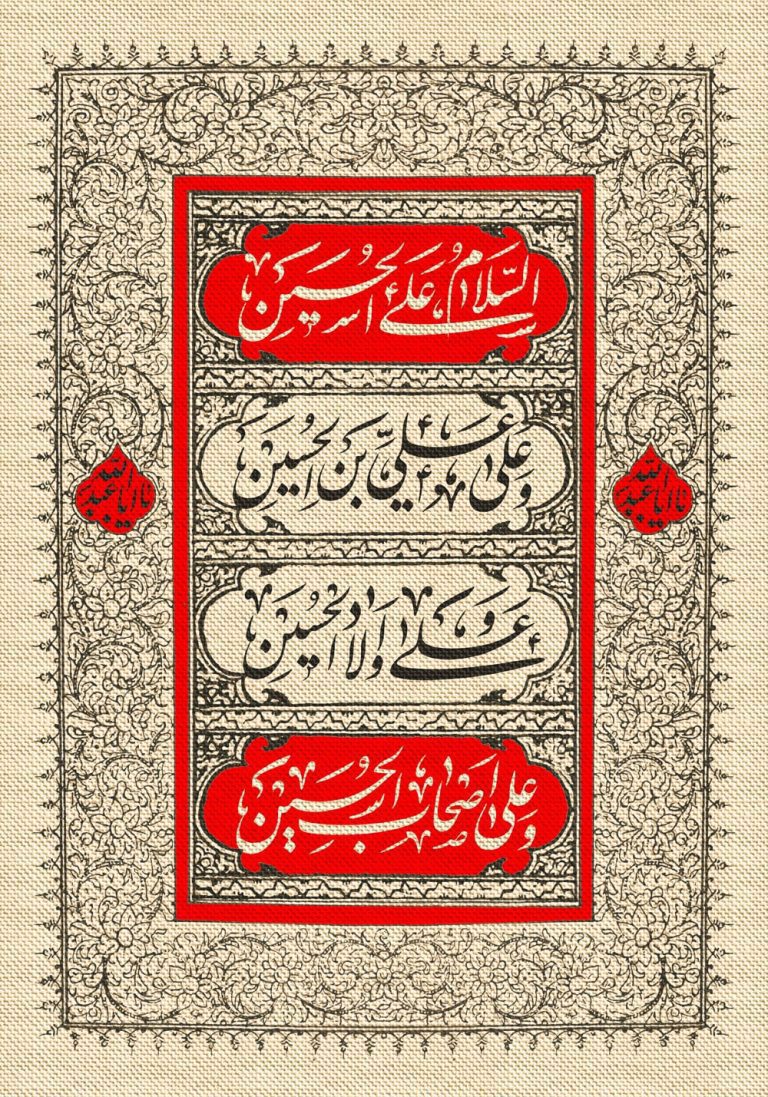 السَّلَامُ عَلَی الْحُسَيْنِ
وَ عَلی عَلِيِّ بْنِ الْحُسَيْنِ
وَ عَلی أَوْلَادِ الْحُسَيْنِ
وَ عَلی أَصْحَابِ الْحُسَيْنِ
یا اباعبدالله
یا اباعبدالله